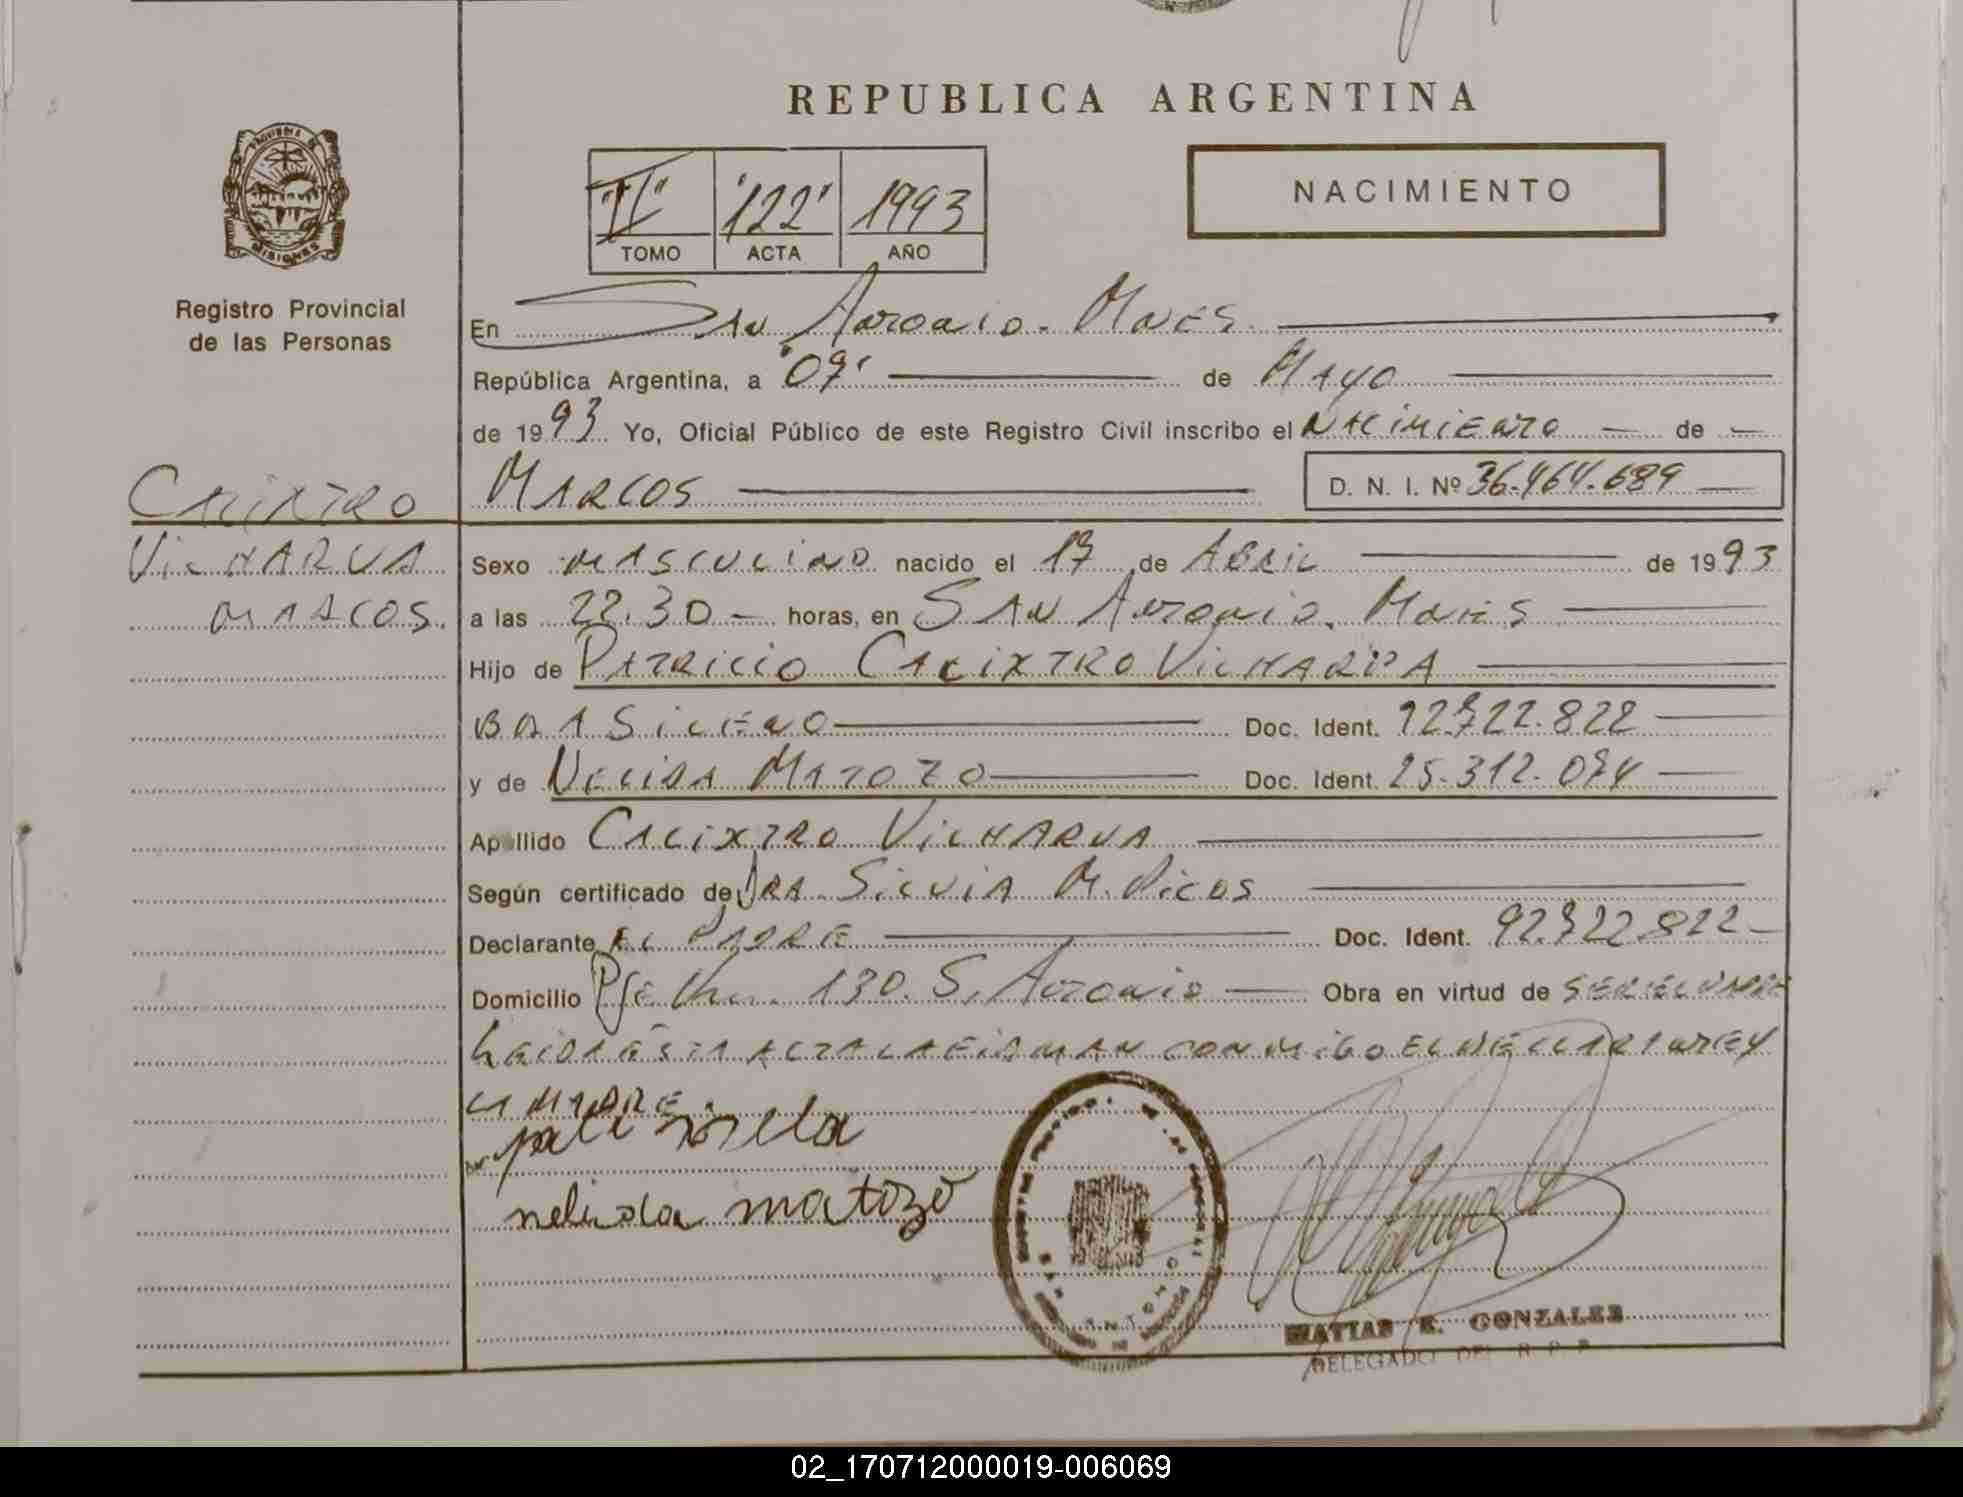 REPUBLICA ARGENTINA
PROVINCIA DE
MISIONES
Registro Provincial
de las Personas
"II" "122" 1993
TOMO ACTA AÑO
NACIMIENTO
En San Antonio. Mnes.
República Argentina, a "07" de Mayo
de 1993 Yo, Oficial Público de este Registro Civil inscribo el NACIMIENTO — de —
CALIXTRO
MARCOS D. N. I. Nº 36.464.689
VILHARVA
MARCOS.
Sexo MASCULINO nacido el 17 de ABRIL de 1993
a las 22.30 — horas, en SAN Antonio. Mnes
Hijo de PATRICIO CALIXTRO VILHARVA
BRASILENO Doc. Ident. 92.722.822
y de NELIDA MATOZO Doc. Ident. 25.312.074
Apellido CALIXTRO VILHARVA
Según certificado de DRA. SILVIA M. Picos
Declarante EL PADRE Doc. Ident. 92.722.822
Domicilio 130. S. Antonio — Obra en virtud de SER EL PADRE
LEIDA ESTA ACTA LA FIRMAN CONMIGO EL DECLARANTE Y
LA MADRE.
nelida matozo
MATIAS E. GONZALEZ
DELEGADO DEL R. P. P.
02_170712000019-006069